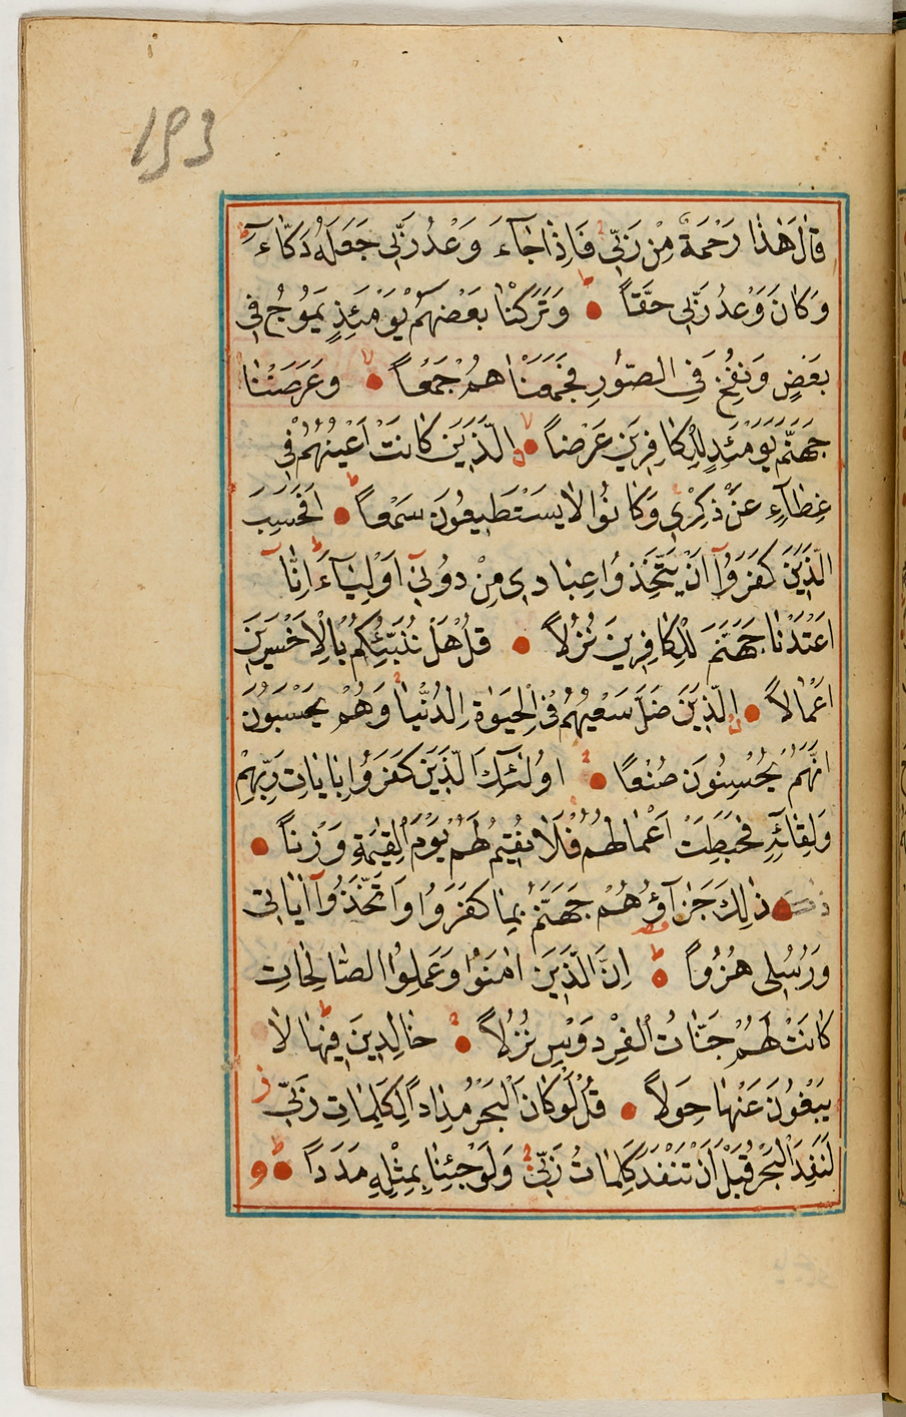 193
قَالَ هٰذَا رَحْمَةٌ مِنْ رَبِّي فَاِذَا جَآءَ وَعْدُ رَبِّي جَعَلَهُ دَكَّآءَ
وَكَانَ وَعْدُ رَبِّي حَقًّا وَتَرَكْنَا بَعْضَهُمْ يَوْمَئِذٍ يَمُوجُ فِي
بَعْضٍ وَنُفِخَ فِي الصُّورِ فَجَمَعْنَاهُمْ جَمْعًا وَعَرَضْنَا
جَهَنَّمَ يَوْمَئِذٍ لِلْكَافِرِينَ عَرْضًا الَّذِينَ كَانَتْ اَعْيُنُهُمْ فِي
غِطَآءٍ عَنْ ذِكْرِي وَكَانُوا لَا يَسْتَطِيعُونَ سَمْعًا اَفَحَسِبَ
الَّذِينَ كَفَرُوٓا اَنْ يَتَّخِذُوا عِبَادِي مِنْ دُونِٓي اَوْلِيَآءَ اِنَّٓا
اَعْتَدْنَا جَهَنَّمَ لِلْكَافِرِينَ نُزُلًا قُلْ هَلْ نُنَبِّئُكُمْ بِالْاَخْسَرِينَ
اَعْمَالًا الَّذِينَ ضَلَّ سَعْيُهُمْ فِي الْحَيٰوةِ الدُّنْيَا وَهُمْ يَحْسَبُونَ
اَنَّهُمْ يُحْسِنُونَ صُنْعًا اُولٰٓئِكَ الَّذِينَ كَفَرُوا بِاٰيَاتِ رَبِّهِمْ
وَلِقَآئِهِ فَحَبِطَتْ اَعْمَالُهُمْ فَلَا نُقِيمُ لَهُمْ يَوْمَ الْقِيٰمَةِ وَزْنًا
ذٰلِكَ جَزَآؤُهُمْ جَهَنَّمُ بِمَا كَفَرُوا وَاتَّخَذُوٓا اٰيَاتِي
وَرُسُلِي هُزُوًا اِنَّ الَّذِينَ اٰمَنُوا وَعَمِلُوا الصَّالِحَاتِ
كَانَتْ لَهُمْ جَنَّاتُ الْفِرْدَوْسِ نُزُلًا خَالِدِينَ فِيهَا لَا
يَبْغُونَ عَنْهَا حِوَلًا قُلْ لَوْ كَانَ الْبَحْرُ مِدَادًا لِكَلِمَاتِ رَبِّي
لَنَفِدَ الْبَحْرُ قَبْلَ اَنْ تَنْفَدَ كَلِمَاتُ رَبِّي وَلَوْ جِئْنَا بِمِثْلِهِ مَدَدًا